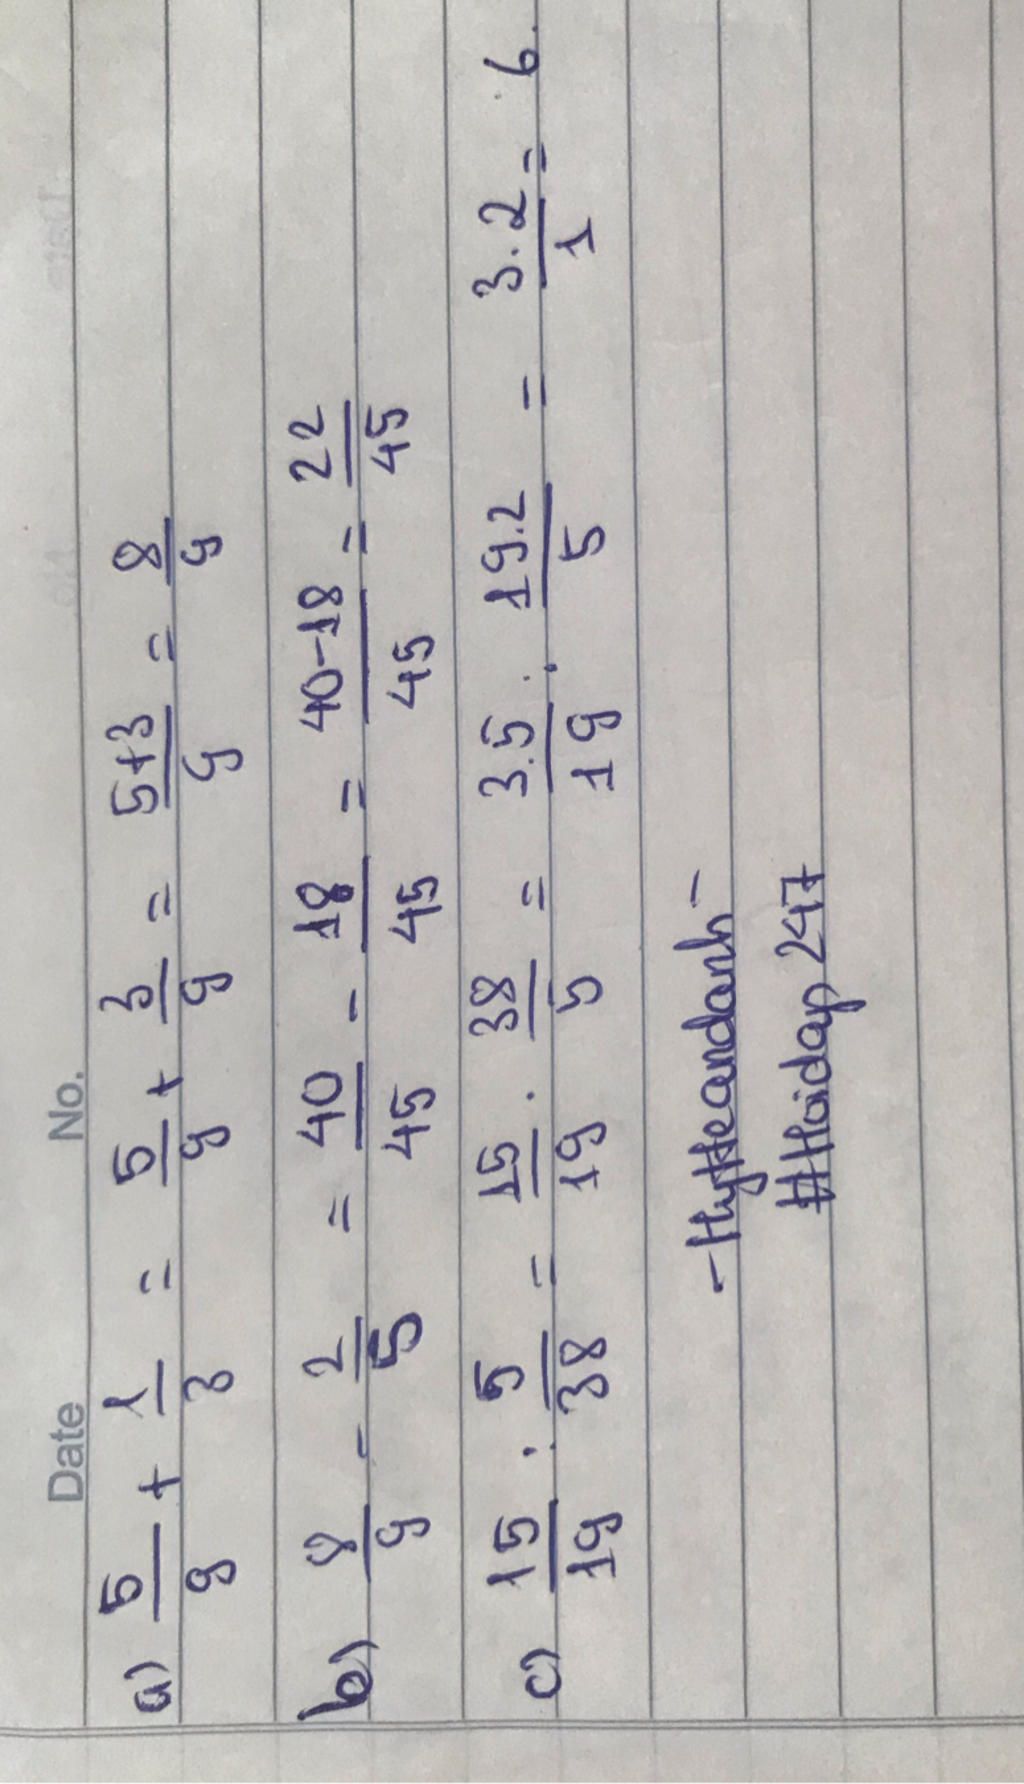 Date No.
a) 5/9 + 1/3 = 5/9 + 3/9 = 5+3/9 = 8/9
b) 8/9 - 2/5 = 40/45 - 18/45 = 40-18/45 = 22/45
c) 15/19 : 5/38 = 15/19 . 38/5 = 3.5/19 . 19.2/5 = 3.2/1 = 6.
#Hoidap247